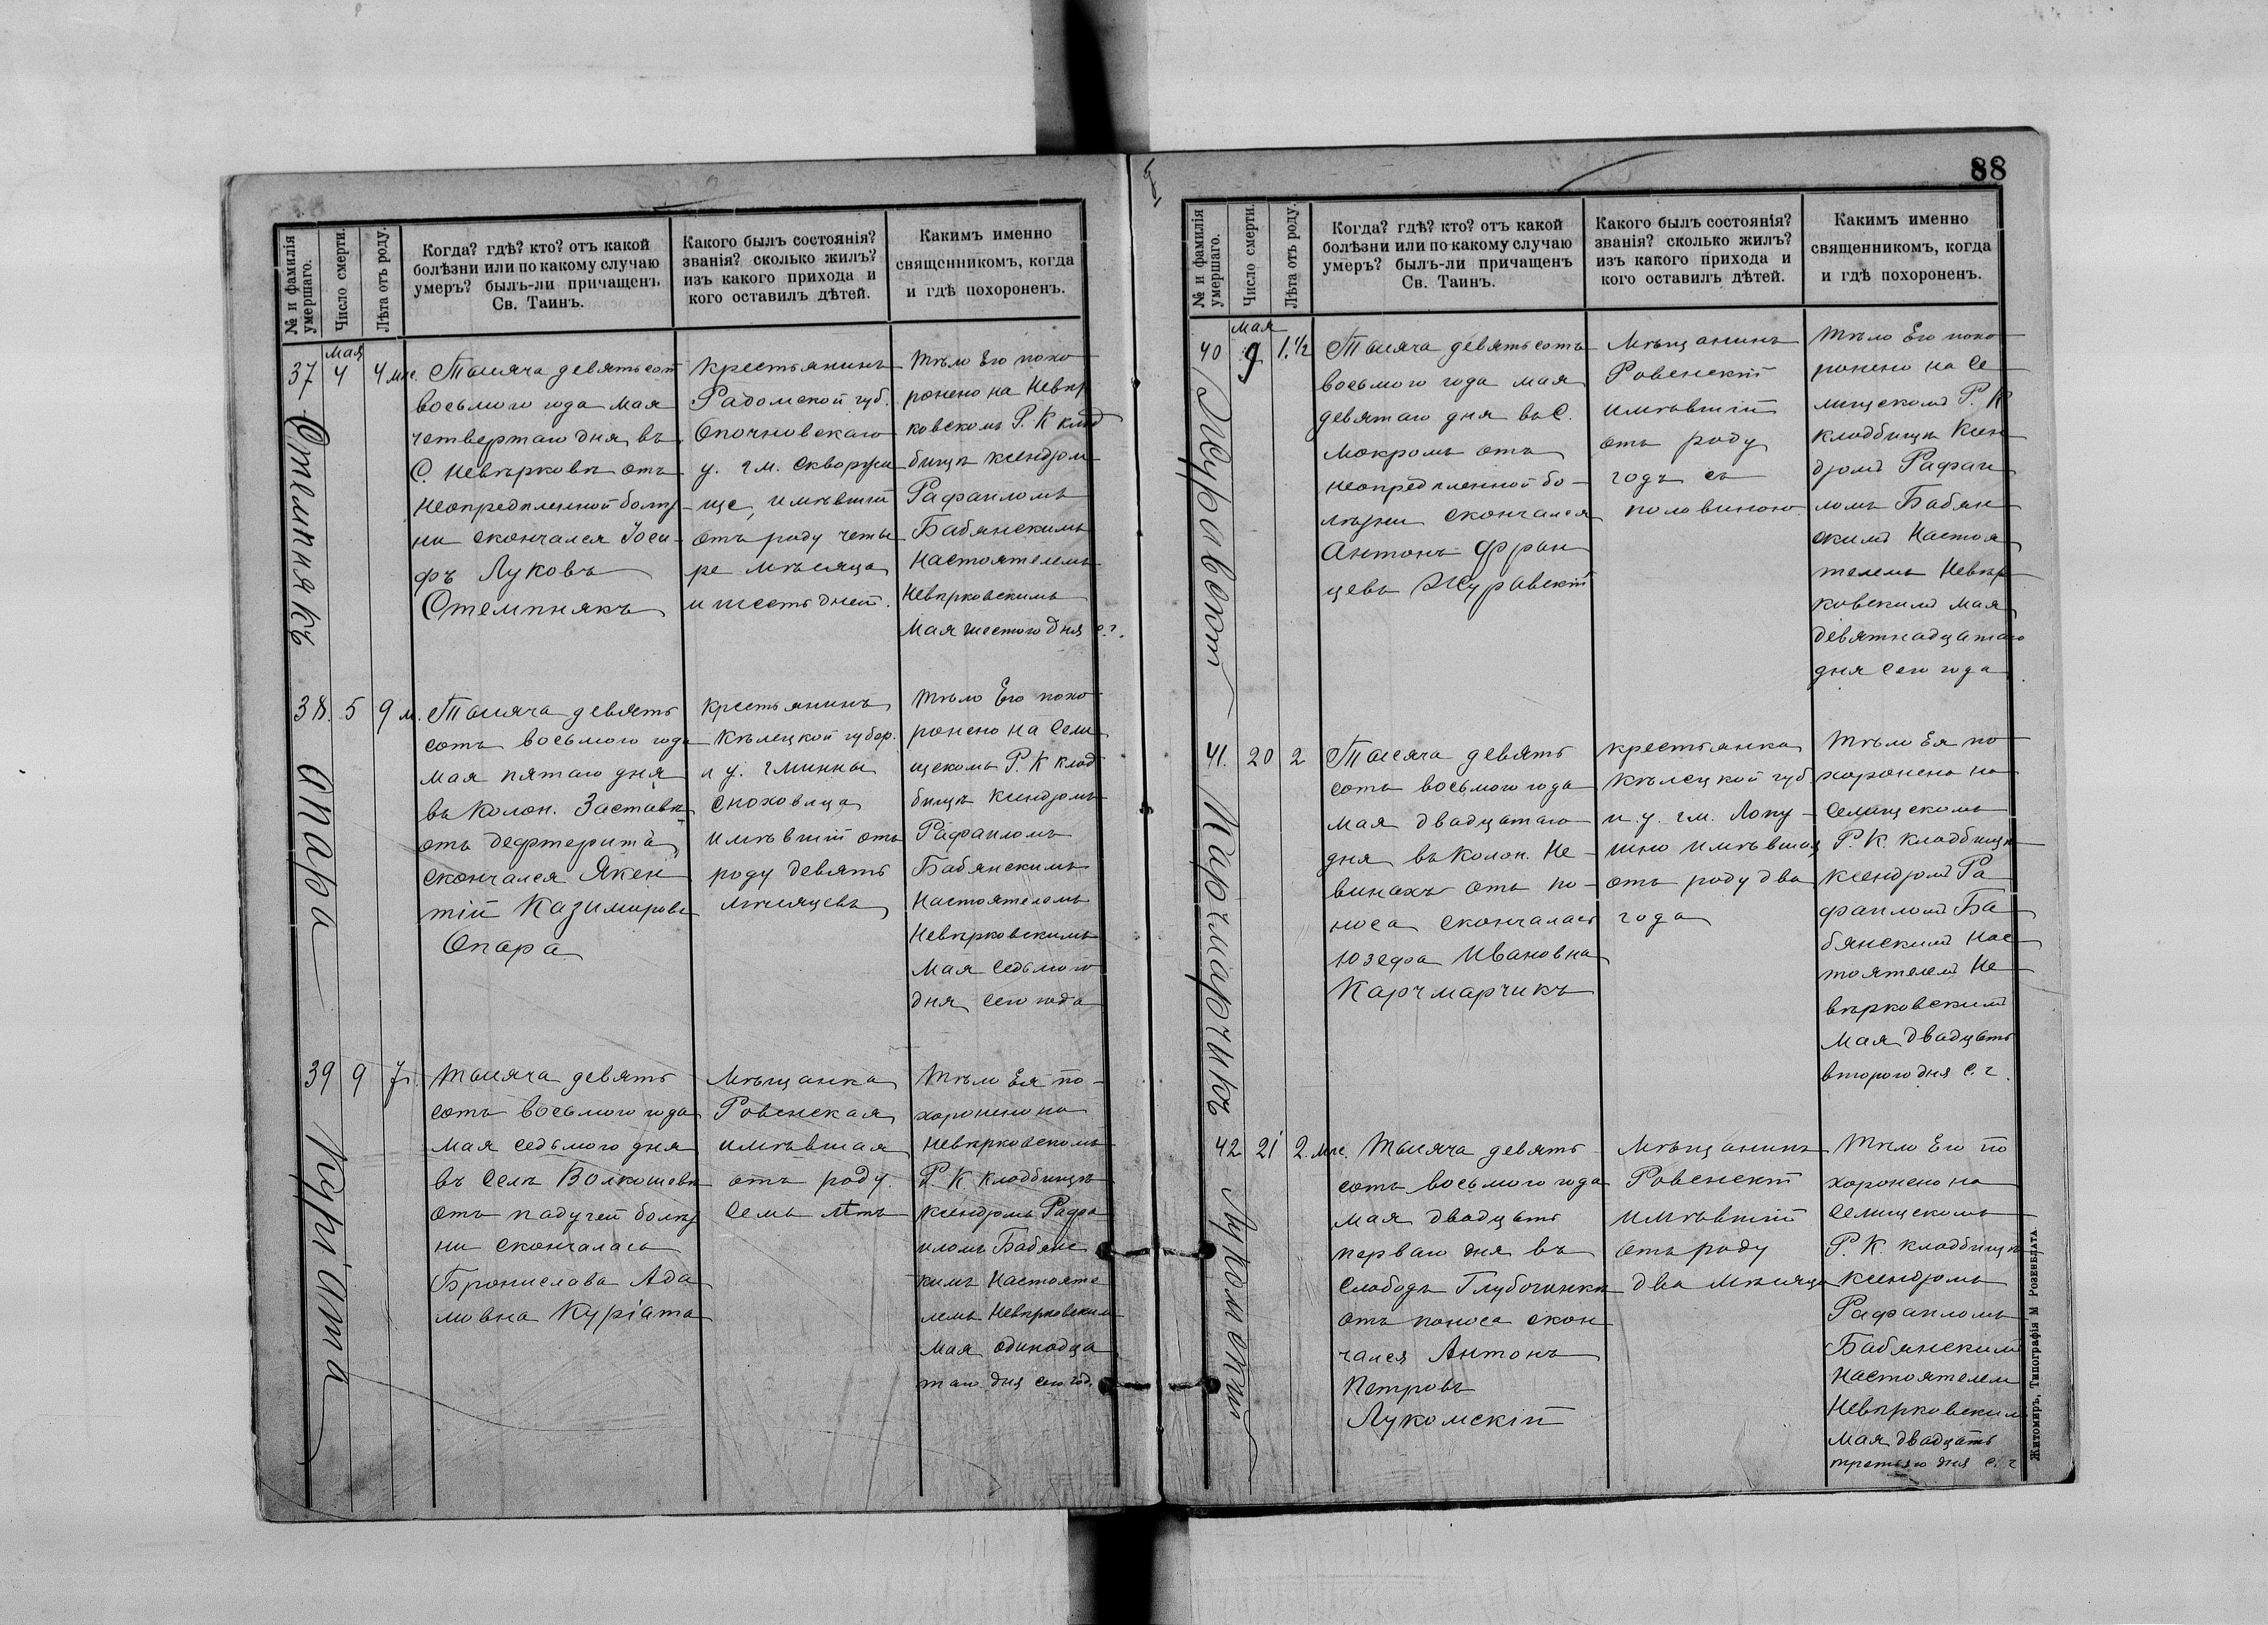 88
№ и фамилія умершаго.
Число смерти.
Лѣта отъ роду.
Когда? гдѣ? кто? отъ какой
болѣзни или по какому случаю
умеръ? былъ-ли причащенъ
Св. Таинъ.
Какого былъ состоянія?
званія? сколько жилъ?
изъ какого прихода и
кого оставилъ дѣтей.
Какимъ именно
священникомъ, когда
и гдѣ похороненъ.
37
Мая
4
4 мѣс.
Отемпнякъ
Тысяча девятьсотъ
восьмого года мая
четвертаго дня въ
С. Невѣрковѣ отъ
неопредѣленной болѣз
ни скончался Іоси-
фъ Луковъ
Отемпнякъ
Крестьянинъ
Радомской губ.
Опочновскаго
у. гм. Скворжи
ще, имѣвшій
отъ роду четы
ре мѣсяца
и шесть дней.
Тѣло Его похо
ронено на Невѣр
ковскомъ Р. К клад
бищѣ ксендзом
Рафаиломъ
Бабянскимъ
Настоятелемъ
Невѣрковскимъ
Мая шестого дня с. г.
38.
5
9 м.
Опара
Тысяча девять
сотъ восьмого года
мая пятаго дня
въ Колон. Заставѣ
отъ дефтерита
скончался Якен
тій Казимировъ
Опара
Крестьянинъ
Кѣлецкой губер.
и у. гмины
Сноховица
имѣвшій отъ
роду девять
мѣсяцевъ
Тѣло Его похо
ронено на Сели
щскомъ Р. К клад
бищѣ ксендзомъ
Рафаиломъ
Бабянскимъ
Настоятелемъ
Невѣрковскимъ
Мая седьмого
дня сего года
39
9
7 г.
Куріата
Тысяча девять
сотъ восьмого года
мая седьмого дня
въ селѣ Волкошевѣ
отъ падучей болѣз
ни скончалась
Бронислава Ада
мовна Куріата
Мѣщанка
Ровенская
имѣвшая
отъ роду
семь лѣтъ
Тѣло Ея по-
хоронено на
Невѣрковскомъ
Р. К. Кладбищѣ
ксендзомъ Рафа
иломъ Бабянс
кимъ Настояте
лемъ Невѣрковским
Мая одинадца
таго дня сего год.
№ и фамилія умершаго.
Число смерти.
Лѣта отъ роду.
Когда? гдѣ? кто? отъ какой
болѣзни или по какому случаю
умеръ? былъ-ли причащенъ
Св. Таинъ.
Какого былъ состоянія?
званія? сколько жилъ?
изъ какого прихода и
кого оставилъ дѣтей.
Какимъ именно
священникомъ, когда
и гдѣ похороненъ.
40
Мая
9
1. 1/2
Журавскій
Тысяча девятьсотъ
восьмого года мая
девятаго дня въ С.
Мокромъ отъ
неопредѣленной бо-
лѣзни скончался
Антонъ Фран
цевъ Журавскій
Мѣщанинъ
Ровенскій
имѣвшій
отъ роду
годъ съ
половиною
Тѣло Его похо
ронено на Се
лищскомъ Р. К
кладбищѣ Ксен
дзомъ Рафаи
ломъ Бабян
скимъ Настоя
телемъ Невѣр
ковскимъ Мая
девятнадцатаго
дня сего года
41.
20
2
Карчмарчикъ
Тысяча девять
сотъ восьмого года
мая двадцатаго
дня въ Колон. Не-
винахъ отъ по-
носа скончалась
Юзефа Ивановна
Карчмарчикъ
Крестьянка
Кѣлецкой губ
и. у. гм. Лопу-
шно имѣвшая
отъ роду два
года
Тѣло Ея по
хоронено на
Селищскомъ
Р. К. Кладбищѣ
Ксендзомъ Ра
фаиломъ Ба
бянскимъ Нас
тоятелемъ Не
вѣрковскимъ
Мая двадцать
второго дня С. г.
42
21
2. мѣс.
Лукомскій
Тысяча девять
сотъ восьмого года
мая двадцать
перваго дня въ
слободѣ Глубочинкѣ
отъ поноса скон
чался Антонъ
Петровъ
Лукомскій
Мѣщанинъ
Ровенскій
имѣвшій
отъ роду
два мѣсяца
Тѣло Его по
хоронено на
Селищскомъ
Р. К. кладбищѣ
ксендзомъ
Рафаиломъ
Бабянскимъ
Настоятелем
Невѣрковским
Мая двадцать
третьяго дня С. г
Житомиръ, Типографія М Розенблата.